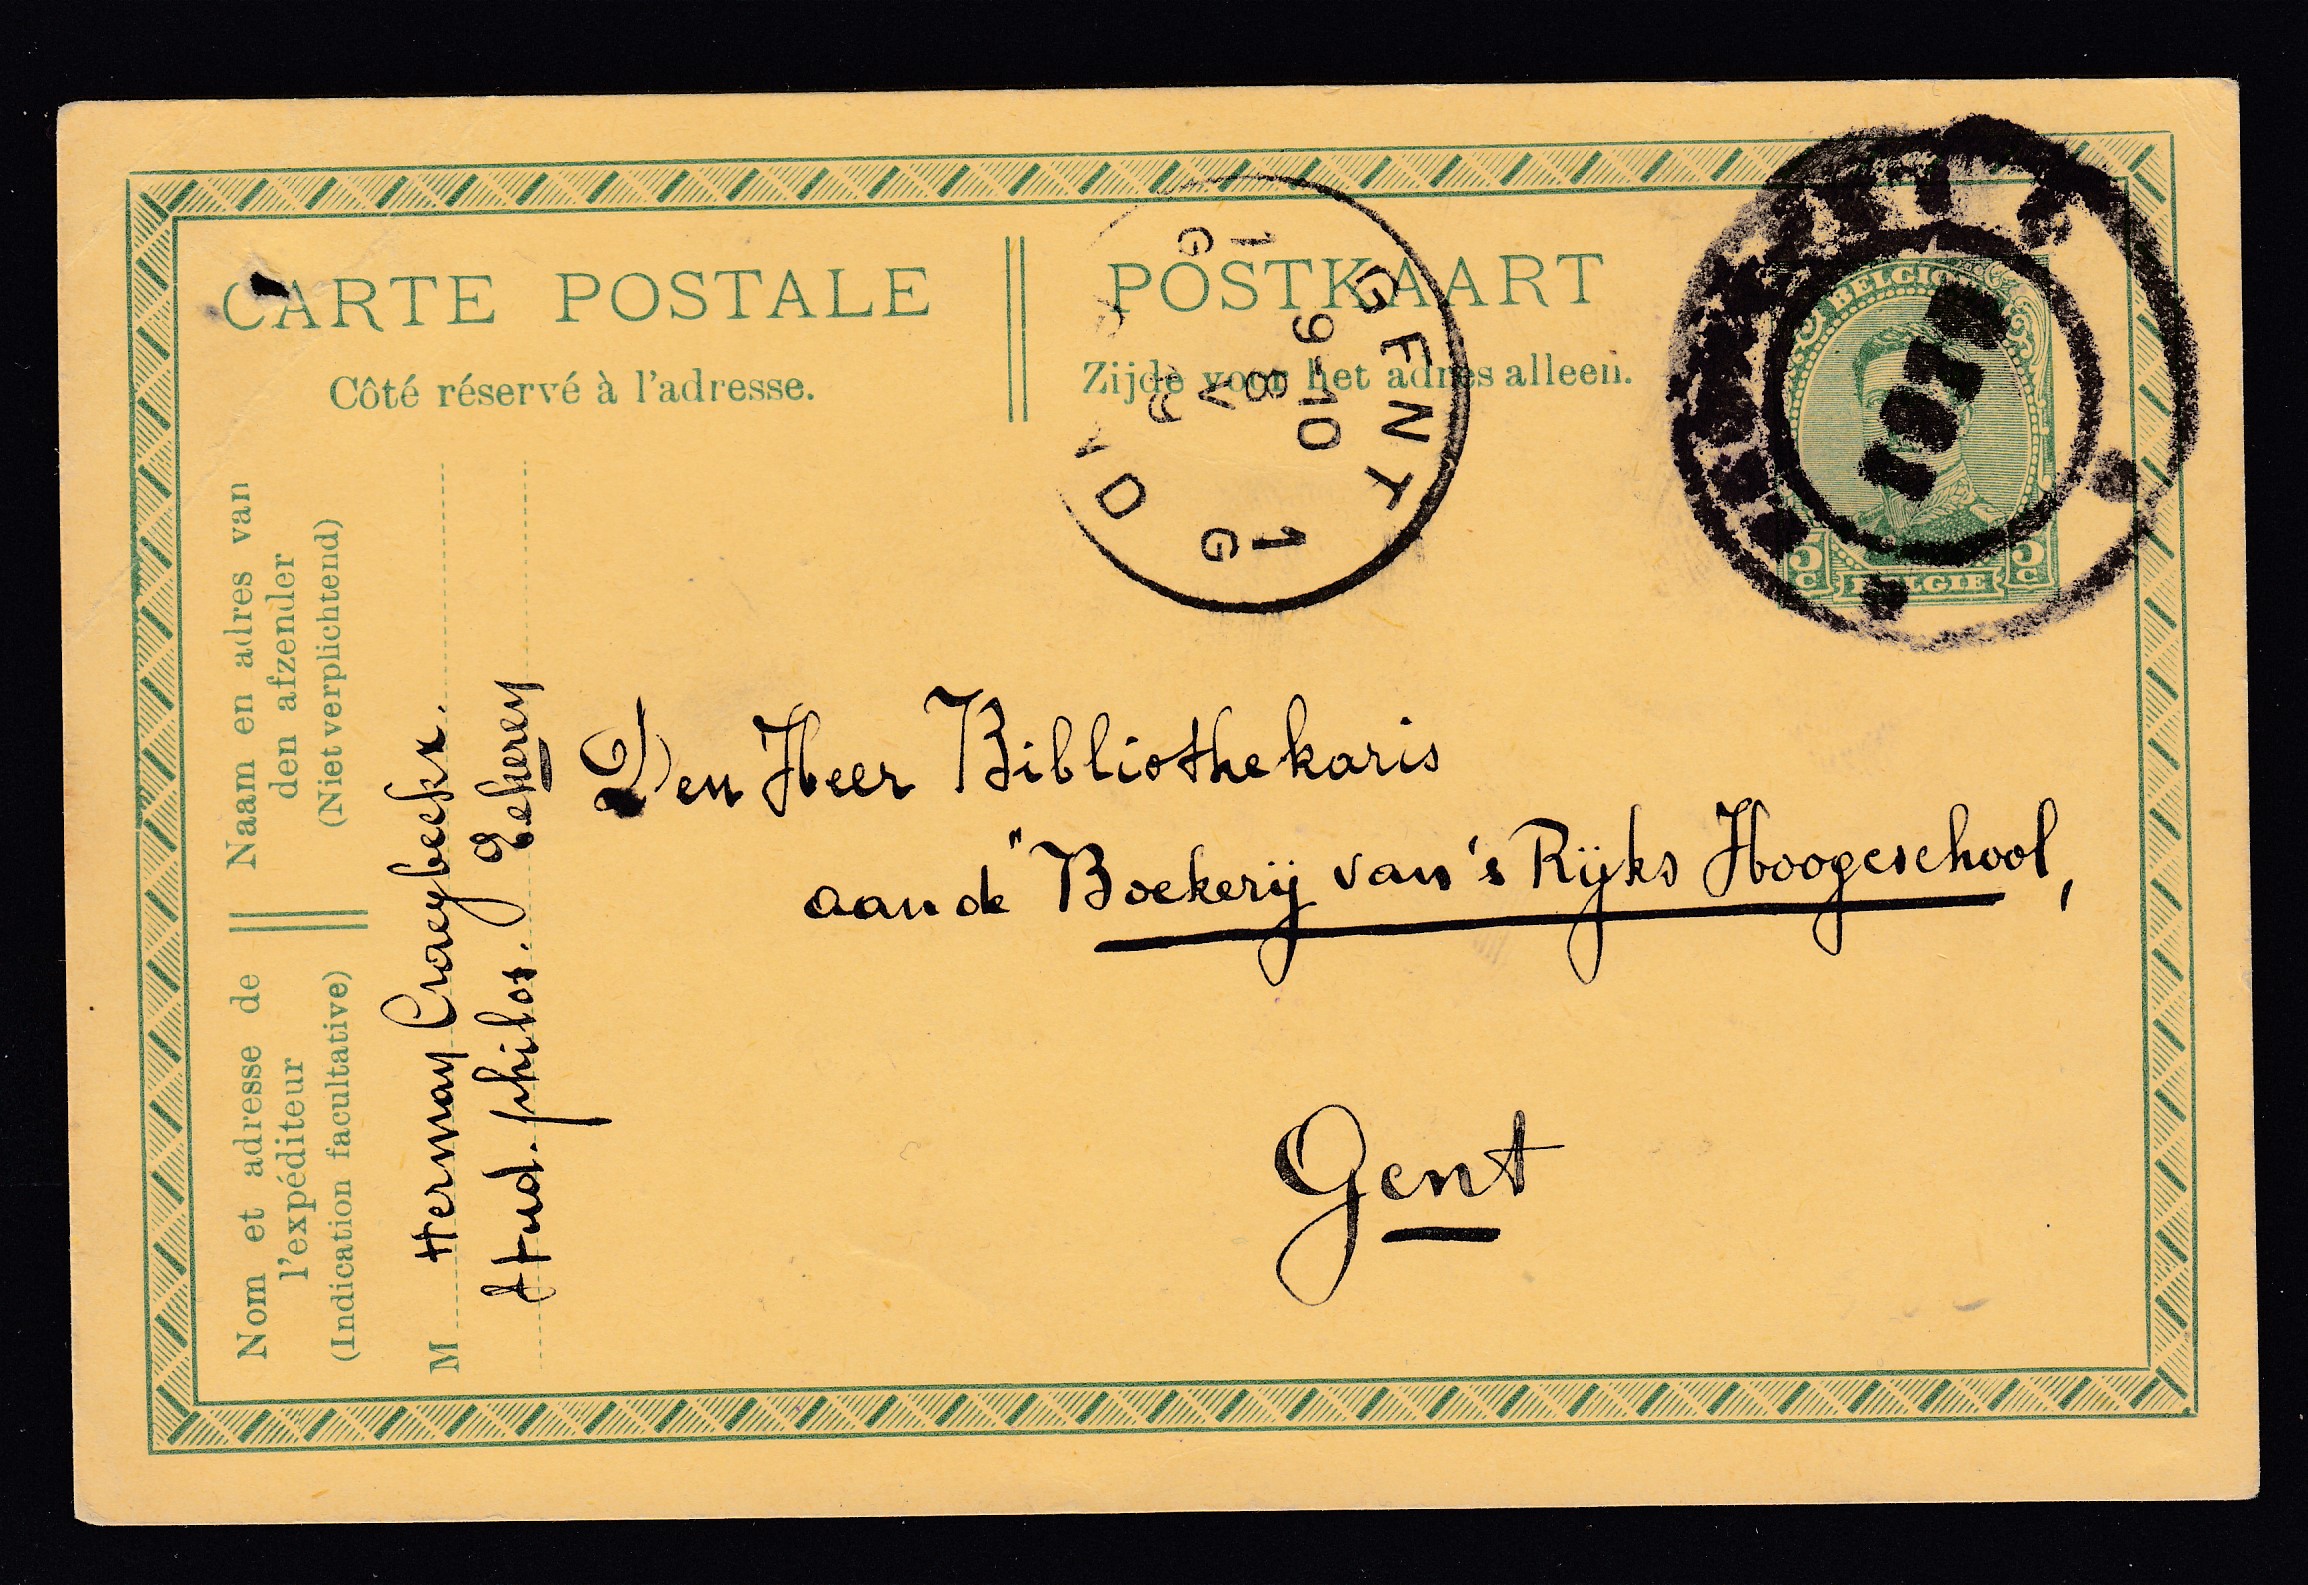 CARTE POSTALE
Côté réservé à l'adresse.
POSTKAART
Zijde voor het adres alleen.
GENT
1 G
9-10
8
V
1 G
BELGIQUE
5 C
BELGIE
5 C
Naam en adres van
den afzender
(Niet verplichtend)
Nom et adresse de
l'expéditeur
(Indication facultative)
M Herman Craeybeckx.
Stud. philos. Eekeren
Den Heer Bibliothekaris
aan de "Boekerij van 's Rijks Hoogeschool,
Gent